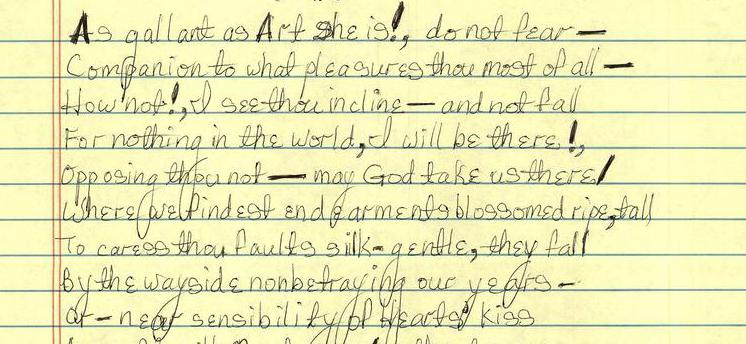 As gallant as Art she is!, do not fear —
Companion to what pleasures thou most of all —
How not!, I see thou incline — and not fall
For nothing in the world, I will be there!,
Opposing thou not — may God take us there!
Where we findest end garments blossomed ripe, tall
To caress thou faults silk-gentle, they fall
By the wayside nonbetraying our years —
Or — near sensibility of Hearts' kiss